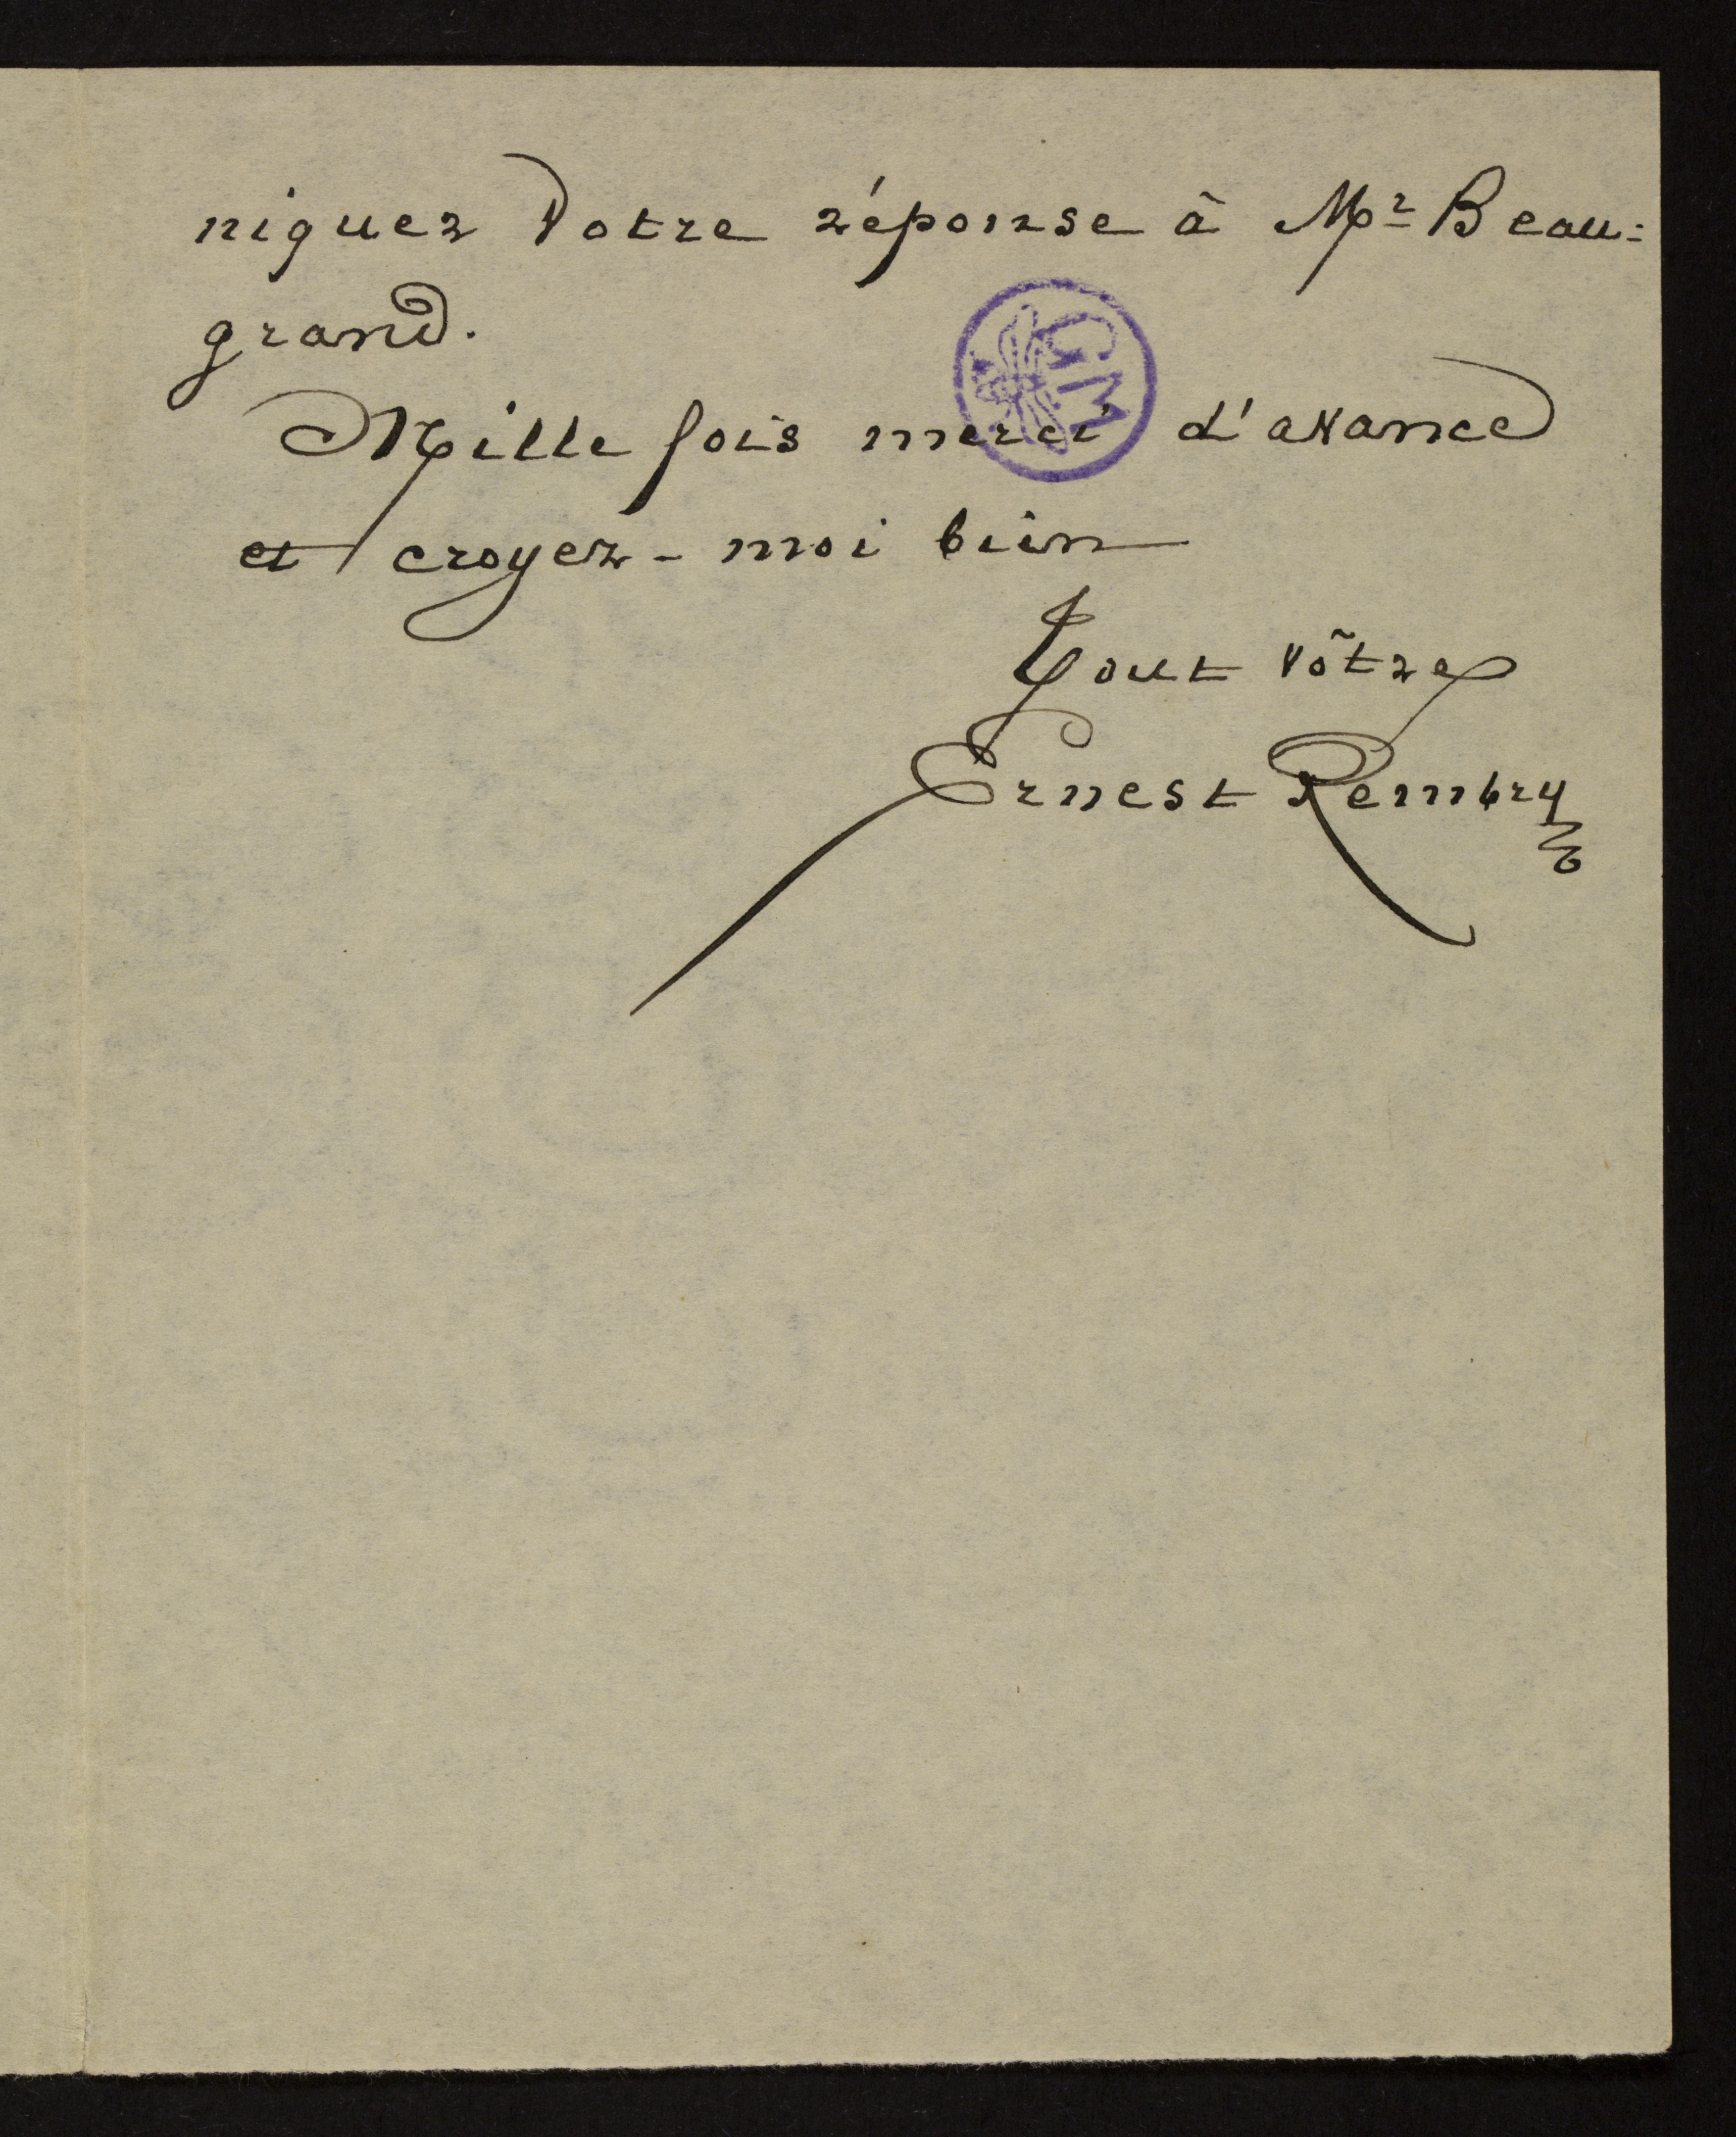 niquez Votre réponse à Mr Beau=
grand.
Mille fois merci d'avance
et croyez-moi bien
Tout vôtre
Ernest Rembry
GM